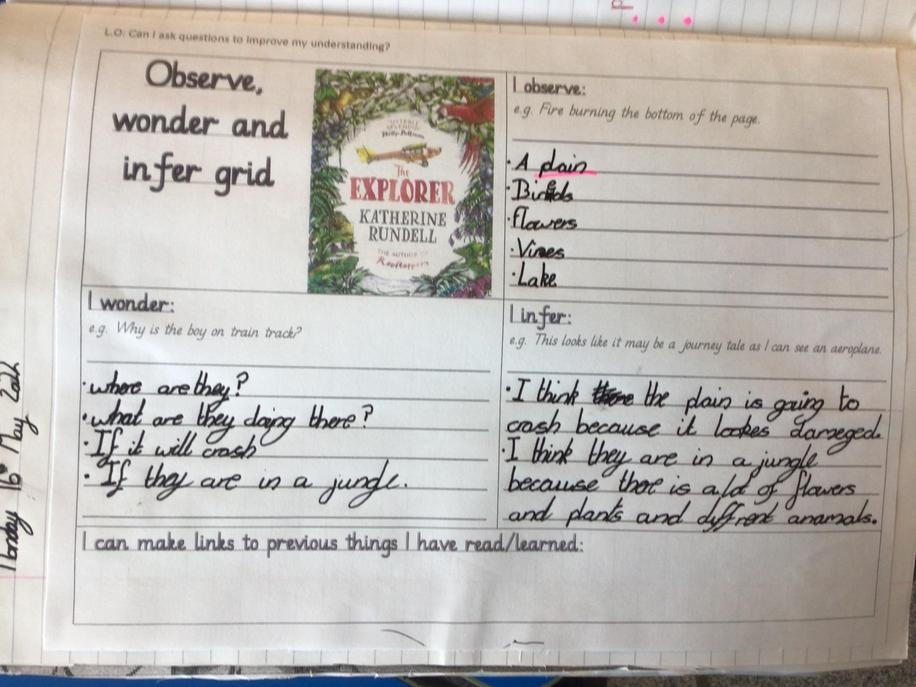 L.O: Can I ask questions to improve my understanding?
Observe,
wonder and
infer grid
The
EXPLORER
KATHERINE
RUNDELL
THE AUTHOR OF
Rooftoppers
I observe:
e.g. Fire burning the bottom of the page.
·A plain
·Birds
·flowers
·Vines
·Lake
I wonder:
e.g. Why is the boy on train track?
·where are they?
·what are they doing there?
·If it will crash
·If they are in a jungle.
I infer:
e.g. This looks like it may be a journey tale as I can see an aeroplane.
·I think the plain is going to
crash because it lookes dameged.
·I think they are in a jungle
because there is a lot of flowers
and plants and diffrent anamals.
I can make links to previous things I have read/learned:
Monday 16th May 2022